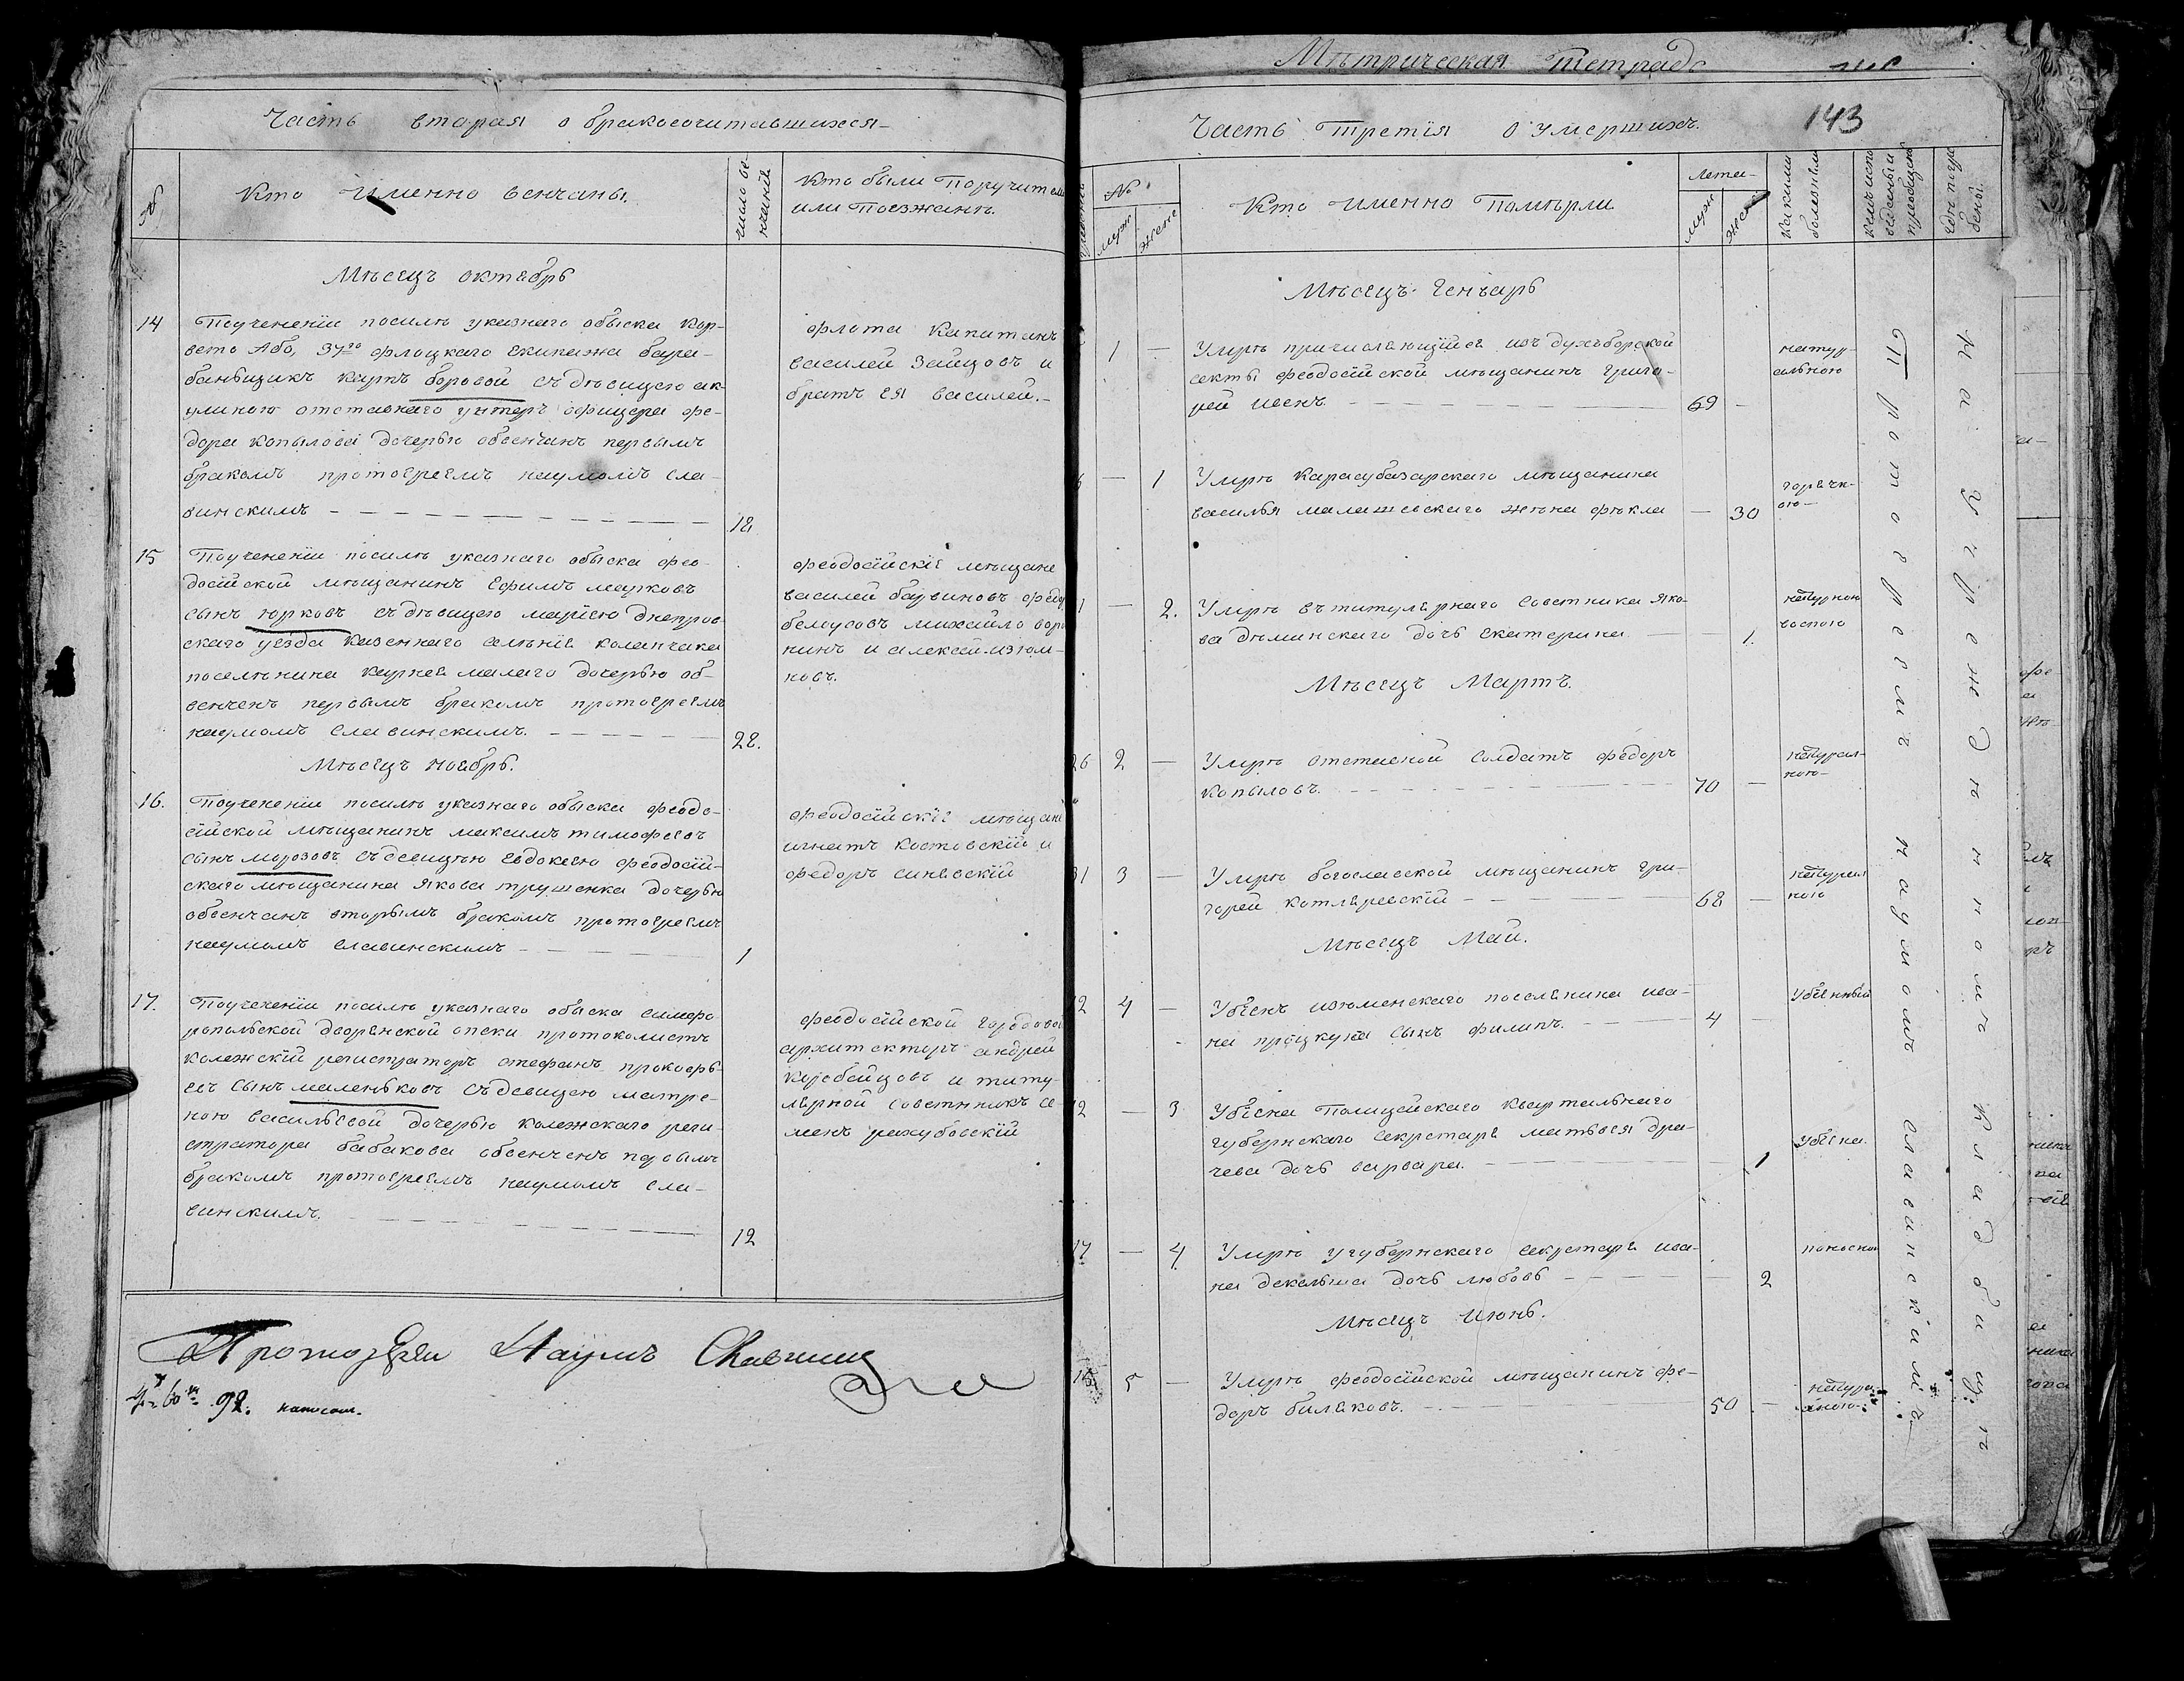 Часть вторая о бракосочитавшихся
№
Кто именно венчаны.
число венчанія
Кто были Поручители
или Поезжанъ.
Мѣсецъ октябрь
14
Поучененіи посилѣ указнаго обыска кор-
вето Або, 34го флоцкаго екипажа бара-
банъщикъ карпъ боровой съ дѣвицею ак-
улиною отставнаго унтеръ офицера фе-
дора копылова дочерью обвенчанъ первымъ
бракомъ протоереемъ наумомъ сла-
винскимъ
12
флота капитанъ
василей Зайцовъ и
братъ ея василей.
15
Поучененіи посилѣ указнаго обыска фео-
досійской мѣщанинъ Ефимъ марковъ
сынъ юрковъ съ дѣвицею маріею днепров-
скаго уезда казеннаго селѣнія каланчака
поселѣнина карнея малаго дочерью об-
венченъ первымъ бракомъ протоереемъ
наумомъ славинскимъ.
22.
феодосійскіе мѣщане
василей барвиновъ федо
белоусовъ михайло воро
нинъ и алексей изюм-
новъ.
Мѣсецъ Ноябрь.
16.
Поучененіи посилѣ указнаго обыска феодо-
сійской мѣщанинъ максимъ тимофеевъ
сынъ морозовъ съ девицѣю евдокеею феодосій-
скаго мѣщанина якова трушенка дочерью
обвенчанъ вторымъ бракомъ протоереемъ
наумомъ славинскимъ
1
феодосійскіе мѣщане
игнатъ костовскій и
федоръ синевскій
17.
Поучененіи посилѣ указнаго обыска симфе-
ропольской дворянской опеки протоколистъ
колежскій регистраторъ стефанъ прокофь-
евъ сынъ маленьковъ съ девицею матре-
ною васильевой дочерью колежскаго реги-
стратора бабакова обвенченъ первымъ
бракомъ протоереемъ наумомъ сла-
винскимъ.
12
феодосійской городовой
архитекторъ андрей
коробейцовъ и титу-
лярной советникъ се-
менъ рахубовскій
Протоіерей Наумъ Славинск
92.
Мѣтрическая тетрадь
143
Часть третія о умершихъ.
№
муж
жене
Кто именно Помѣрли
Лета
муж
жен
какими болезньми
Мѣсецъ Генъварь
1 —
Умрѣ причисляющійся изъ духъборской
секты феодосійской мѣщанинъ григо-
рей ивенъ.
69 —
натур-
альною
— 1
Умрѣ карасубазарскаго мѣщанина
василья малашевскаго жѣна фѣкла
— 30
горячк-
ою
— 2.
Умрѣ въ титулярнаго советника яко-
ва дѣминскаго дочь екатерина
— 1.
натурною
воспою
Мѣсецъ Мартъ.
26 2 —
Умрѣ отставной солдатъ федоръ
копыловъ.
70 —
натурал-
ною
31 3 —
Умрѣ богославской мѣщанинъ гри-
горей котляревскій
68 —
натурал
ною
Мѣсецъ Май.
12 4 —
Убіенъ изюменскаго поселянина ива-
на працкуна сынъ филипъ.
4 —
Убіенный
12 — 3
Убіена Полицейскаго квартальнаго
губернскаго секретаря матвѣя дра-
чева дочь варвара.
1
Убіена
17 — 4
Умрѣ у губернскаго секретаря ива-
на декальша дочь любовь
2
поносно
Мѣсецъ Июнь.
5 —
Умрѣ феодосійской мѣщанинъ фе-
доръ биляковъ.
50 —
натура
лною
протоереемъ наумомъ славинскимъ
На учрежденномъ кладбищѣ